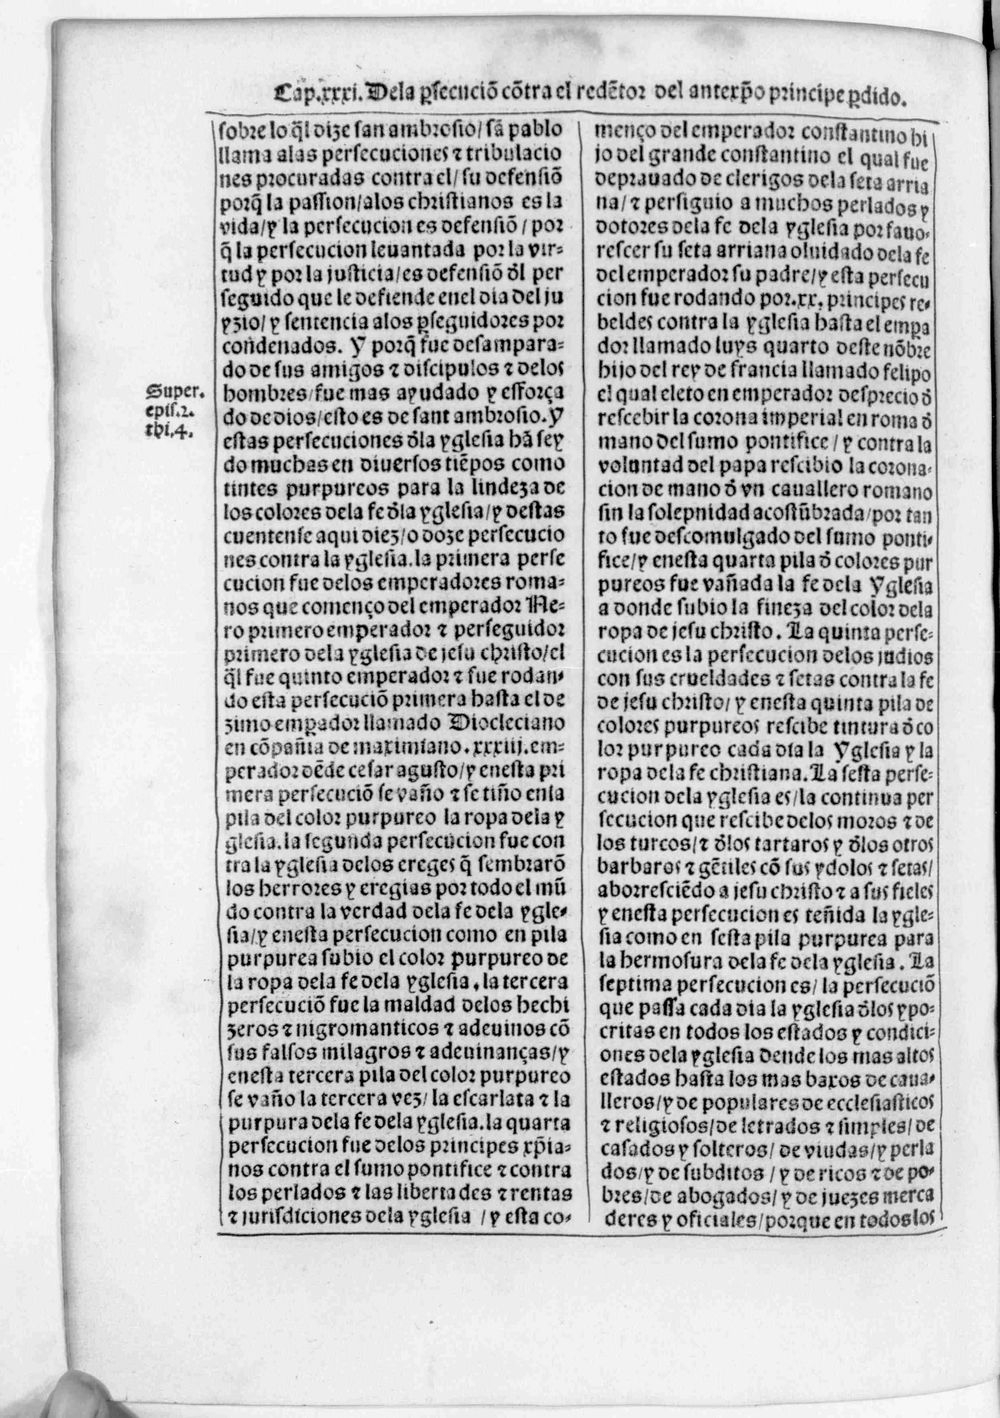 Cap.xxxi. Dela ꝑsecuciõ cõtra el redẽtor del antexp̃o principe ꝑdido.
sobre lo q̃l dize san ambrosio/sã pablo
llama alas persecuciones ⁊ tribulacio
nes procuradas contra el/ su defensiõ
porq̃ la passion/alos christianos es la
vida/y la persecucion es defensiõ/ por
q̃ la persecucion leuantada por la vir-
tud y por la justicia/es defensiõ d̃l per
seguido que le defiende enel dia del ju
yzio/y sentencia alos ꝑseguidores por
condenados. Y porq̃ fue desampara-
do de sus amigos ⁊ discipulos ⁊ delos
hombres/fue mas ayudado y esforça
do de dios/esto es de sant ambrosio. Y
estas persecuciones d̃la yglesia hã sey
do muchas en diuersos tiẽpos como
tintes purpureos para la lindeza de
los colores dela fe d̃la yglesia/y destas
cuentense aqui diez/o doze persecucio
nes contra la yglesia. la primera perse
cucion fue delos emperadores roma-
nos que començo del emperador Ne-
ro primero emperador ⁊ perseguidor
primero dela yglesia de jesu christo/el
q̃l fue quinto emperador ⁊ fue rodan-
do esta persecuciõ primera hasta el de
zimo emꝑador llamado Diocleciano
en cõpañia de maximiano.xxxiij.em-
perador dẽde cesar agusto/y enesta pri
mera persecuciõ se vaño ⁊ se tiño enla
pila del color purpureo la ropa dela y
glesia. la segunda persecucion fue con
tra la yglesia delos ereges q̃ sembrarõ
los herrores y eregias por todo el mũ
do contra la verdad dela fe dela ygle-
sia/y enesta persecucion como en pila
purpurea subio el color purpureo de
la ropa dela fe dela yglesia. la tercera
persecuciõ fue la maldad delos hechi
zeros ⁊ nigromanticos ⁊ adeuinos cõ
sus falsos milagros ⁊ adeuinanças/y
enesta tercera pila del color purpureo
se vaño la tercera vez/ la escarlata ⁊ la
purpura dela fe dela yglesia. la quarta
persecucion fue delos principes xp̃ia-
nos contra el sumo pontifice ⁊ contra
los perlados ⁊ las libertades ⁊ rentas
⁊ jurisdiciones dela yglesia /y esta co-
Super.
epis.2.
thi.4.
menço del emperador constantino hi
jo del grande constantino el qual fue
deprauado de clerigos dela seta arria
na/ ⁊ persiguio a muchos perlados y
dotores dela fe dela yglesia por fauo-
rescer su seta arriana oluidado dela fe
del emperador su padre/y esta persecu
cion fue rodando por.xx. principes re-
beldes contra la yglesia hasta el empa
dor llamado luys quarto deste nõbre
hijo del rey de francia llamado felipo
el qual eleto en emperador desprecio d̃
rescebir la corona imperial en roma d̃
mano del sumo pontifice / y contra la
voluntad del papa rescibio la corona-
cion de mano d̃ vn cauallero romano
sin la solepnidad acostũbrada/por tan
to fue descomulgado del sumo ponti-
fice/y enesta quarta pila d̃ colores pur
pureos fue vañada la fe dela Yglesia
a donde subio la fineza del color dela
ropa de jesu christo. La quinta perse-
cucion es la persecucion delos judios
con sus crueldades ⁊ setas contra la fe
de jesu christo/ y enesta quinta pila de
colores purpureos rescibe tintura d̃ co
lor purpureo cada dia la Yglesia y la
ropa dela fe christiana. La sesta perse-
cucion dela yglesia es/la continua per
secucion que rescibe delos moros ⁊ de
los turcos/⁊ d̃los tartaros y d̃los otros
barbaros ⁊ gẽtiles cõ sus ydolos ⁊ setas/
aborresciẽdo a jesu christo ⁊ a sus fieles
y enesta persecucion es teñida la ygle-
sia como en sesta pila purpurea para
la hermosura dela fe dela yglesia. La
septima persecucion es/ la persecuciõ
que passa cada dia la yglesia d̃los ypo-
critas en todos los estados y condici-
ones dela yglesia dende los mas altos
estados hasta los mas baxos de caua-
lleros/y de populares de ecclesiasticos
⁊ religiosos/de letrados ⁊ simples/de
casados y solteros/ de viudas/y perla
dos/y de subditos / y de ricos ⁊ de po-
bres/de abogados/ y de juezes merca
deres y oficiales/porque en todos los